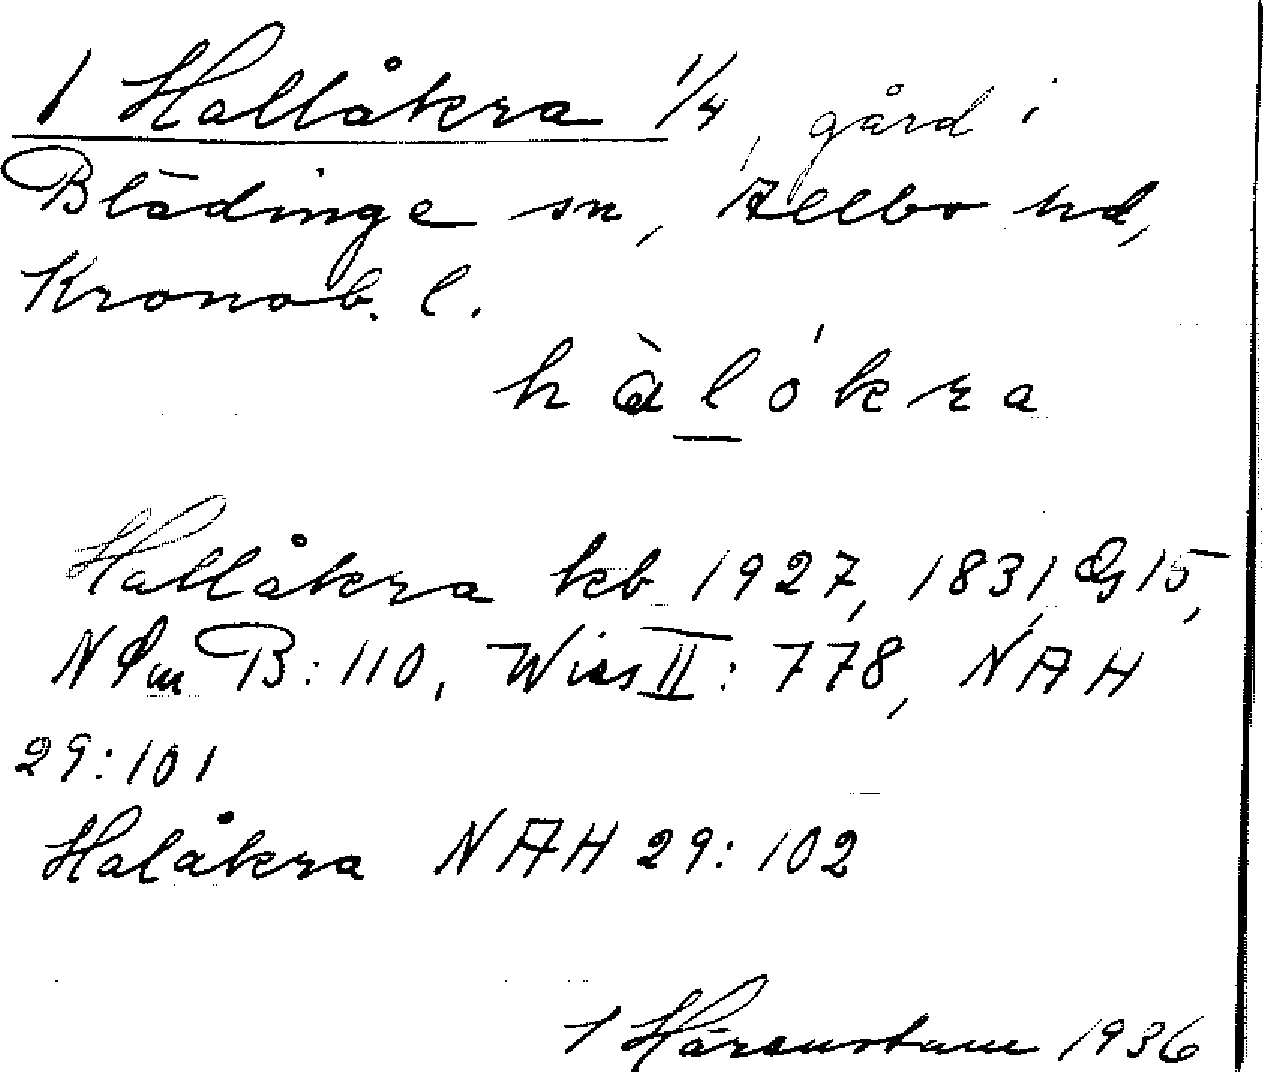 1 Hallåkra 1/4, gård i
Blädinge sn, Allbo hd,
Kronob. l.
hàlókra
Hallåkra kb 1927, 1831 G 15,
N Om B: 110, Wies II: 778, NAH
29: 101
Halåkra NAH 29: 102
1936